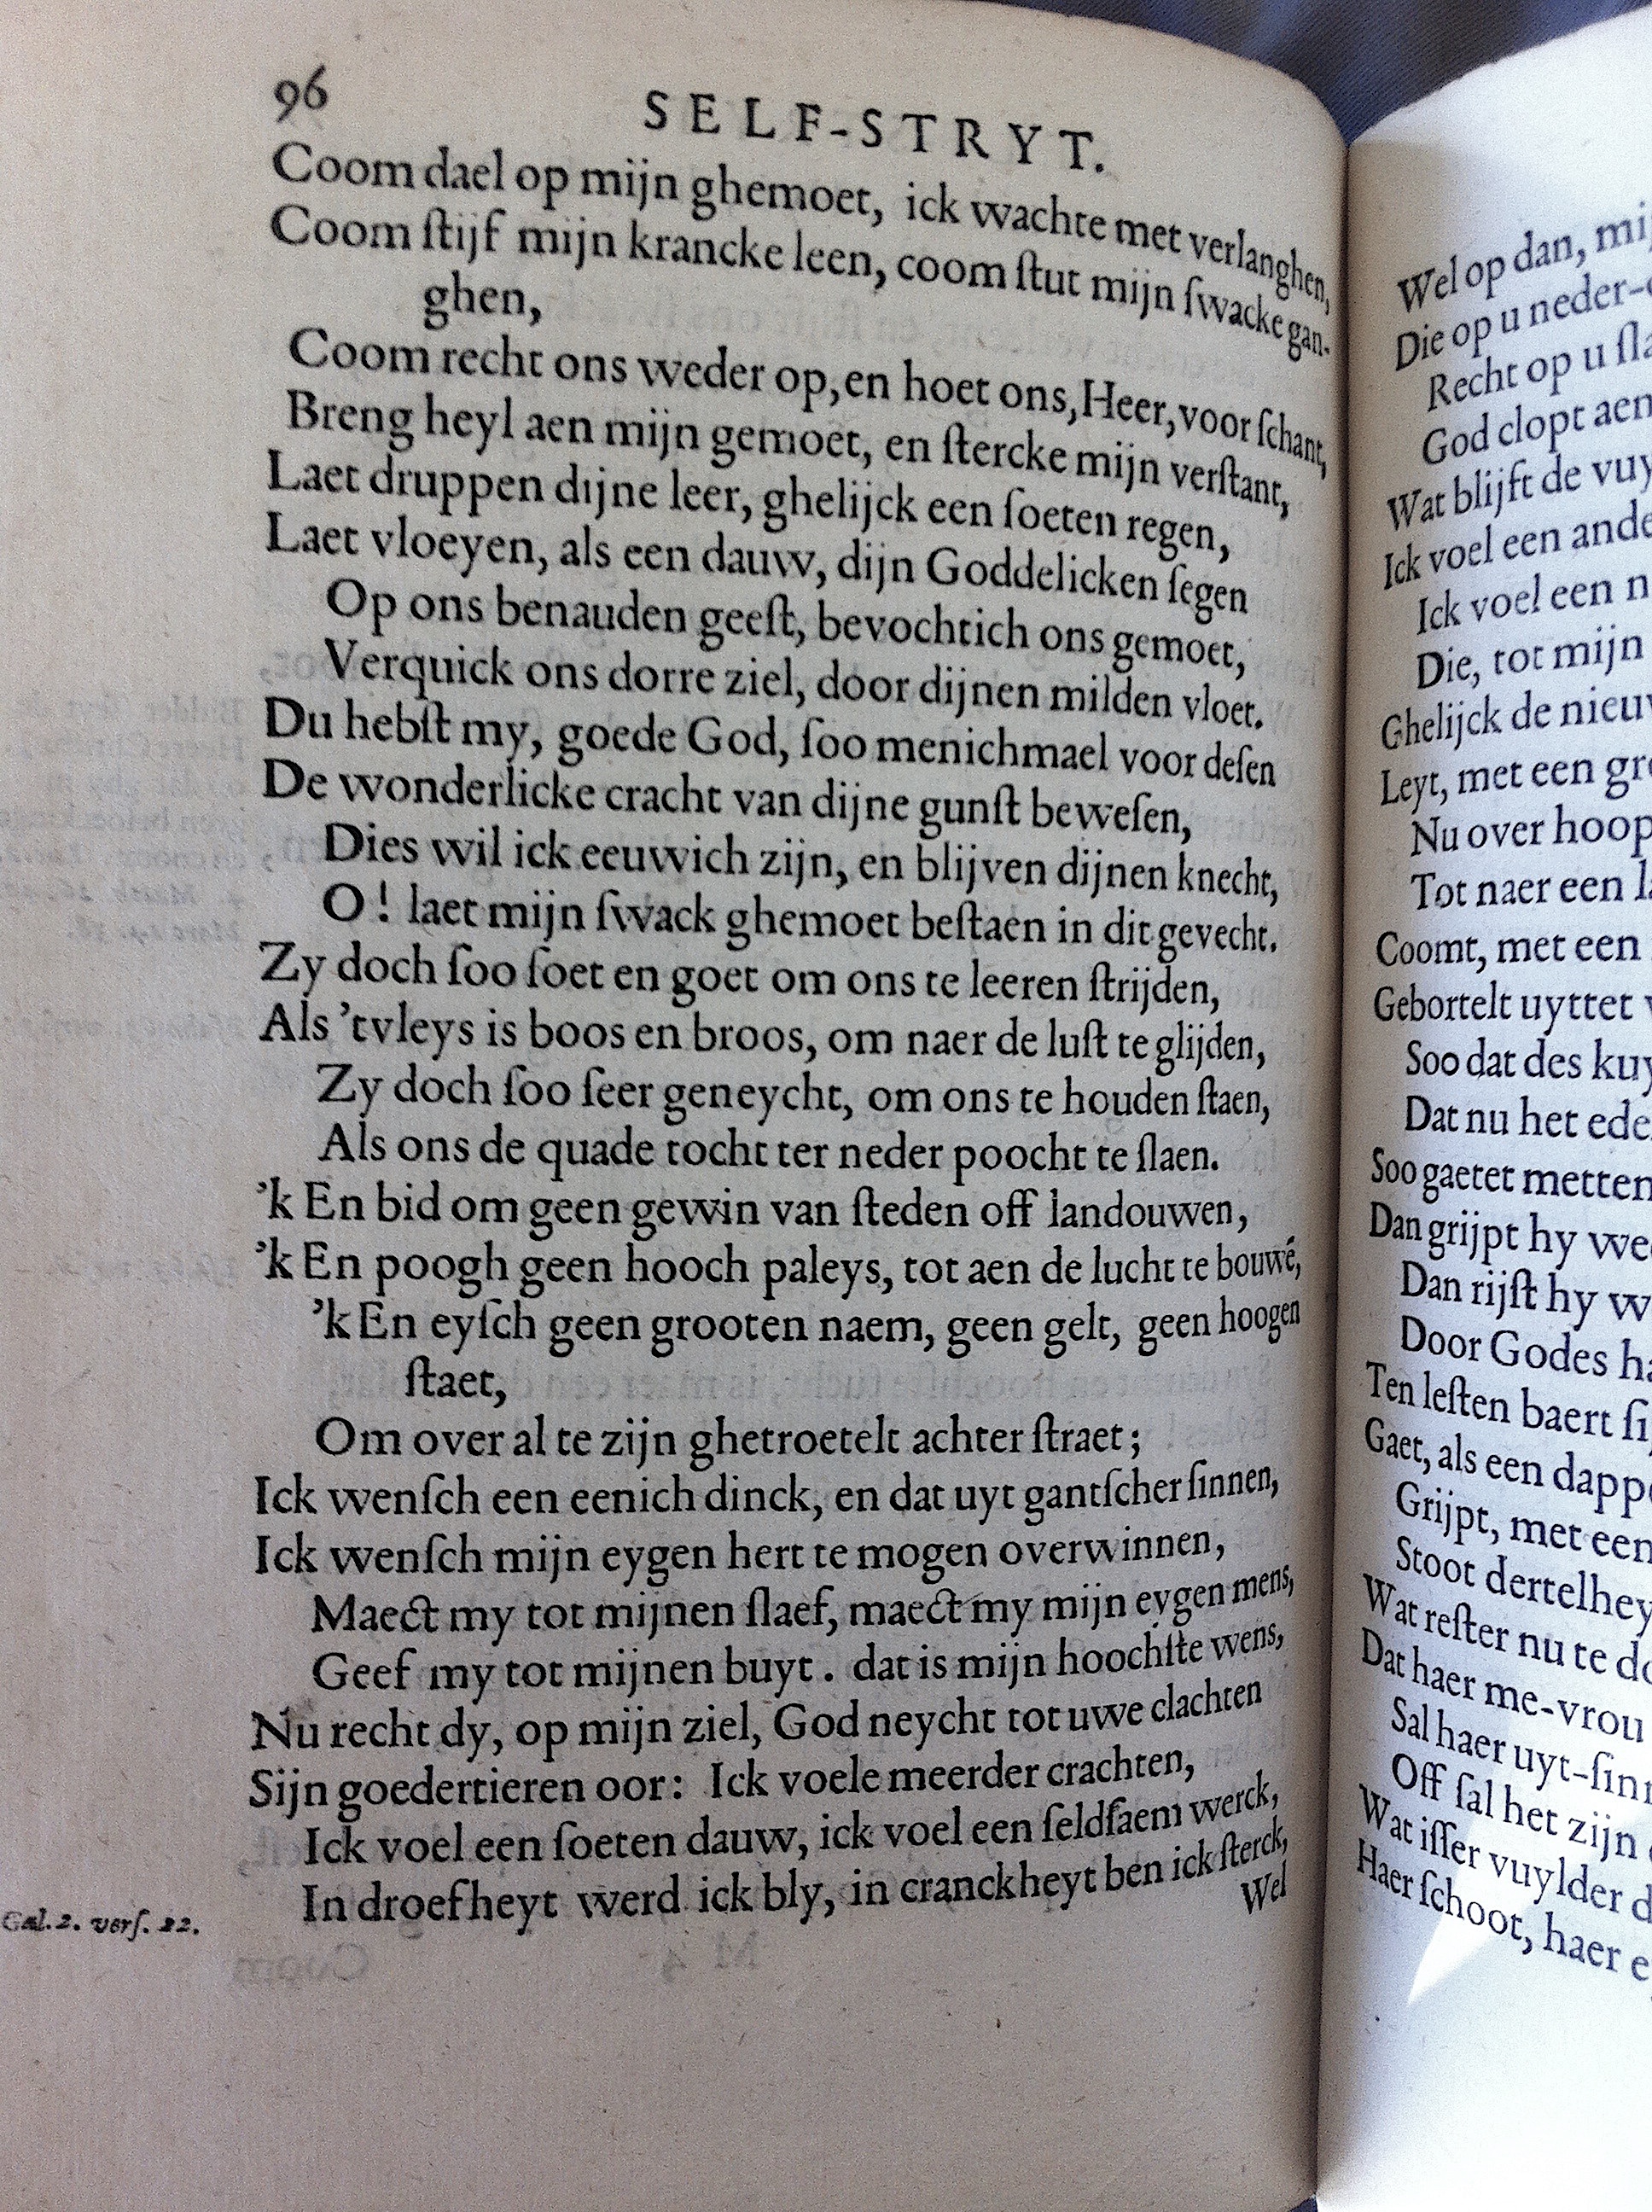 96
SELF-STRYT.
Coom dael op mijn ghemoet, ick wachte met verlanghen,
Coom ſtijf mijn krancke leen, coom ſtut mijn ſwacke gan-
ghen,
Coom recht ons weder op, en hoet ons, Heer, voor ſchant,
Breng heyl aen mijn gemoet, en ſtercke mijn verſtant,
Laet druppen dijne leer, ghelijck een ſoeten regen,
Laet vloeyen, als een dauw, dijn Goddelicken ſegen
Op ons benauden geeſt, bevochtich ons gemoet,
Verquick ons dorre ziel, door dijnen milden vloet.
Du hebſt my, goede God, ſoo menichmael voor deſen
De wonderlicke cracht van dijne gunſt beweſen,
Dies wil ick eeuwich zijn, en blijven dijnen knecht,
O! laet mijn ſwack ghemoet beſtaen in dit gevecht.
Zy doch ſoo ſoet en goet om ons te leeren ſtrijden,
Als 'tvleys is boos en broos, om naer de luſt te glijden,
Zy doch ſoo ſeer geneycht, om ons te houden ſtaen,
Als ons de quade tocht ter neder poocht te ſlaen.
'k En bid om geen gewin van ſteden off landouwen,
'k En poogh geen hooch paleys, tot aen de lucht te bouwé,
'k En eyſch geen grooten naem, geen gelt, geen hoogen
ſtaet,
Om over al te zijn ghetroetelt achter ſtraet;
Ick wenſch een eenich dinck, en dat uyt gantſcher ſinnen,
Ick wenſch mijn eygen hert te mogen overwinnen,
Maect my tot mijnen ſlaef, maect my mijn eygen mens,
Geef my tot mijnen buyt. dat is mijn hoochſte wens,
Nu recht dy, op mijn ziel, God neycht tot uwe clachten
Sijn goedertieren oor: Ick voele meerder crachten,
Ick voel een ſoeten dauw, ick voel een ſeldſaem werck,
In droefheyt werd ick bly, in cranckheyt ben ick ſterck,
Wel
Gal. 2. verſ. 22.
Wel op dan,
Die op u neder-
Recht op u
God clopt aen
Wat blijft de
Ick voel een
Ick voel een
Die, tot mijn
Ghelijck de
Leyt, met een
Nu over hoop
Tot naer een
Coomt, met een
Gebortelt uyttet
Soo dat des
Dat nu het
Soo gaetet metten
Dan grijpt hy
Dan rijſt hy
Door Godes
Ten leſten baert
Gaet, als een
Grijpt, met een
Stoot
Wat reſter nu te
Dat haer me-vrou
Sal haer
Off ſal het zijn
Wat iſſer vuylder
Haer ſchoot, haer